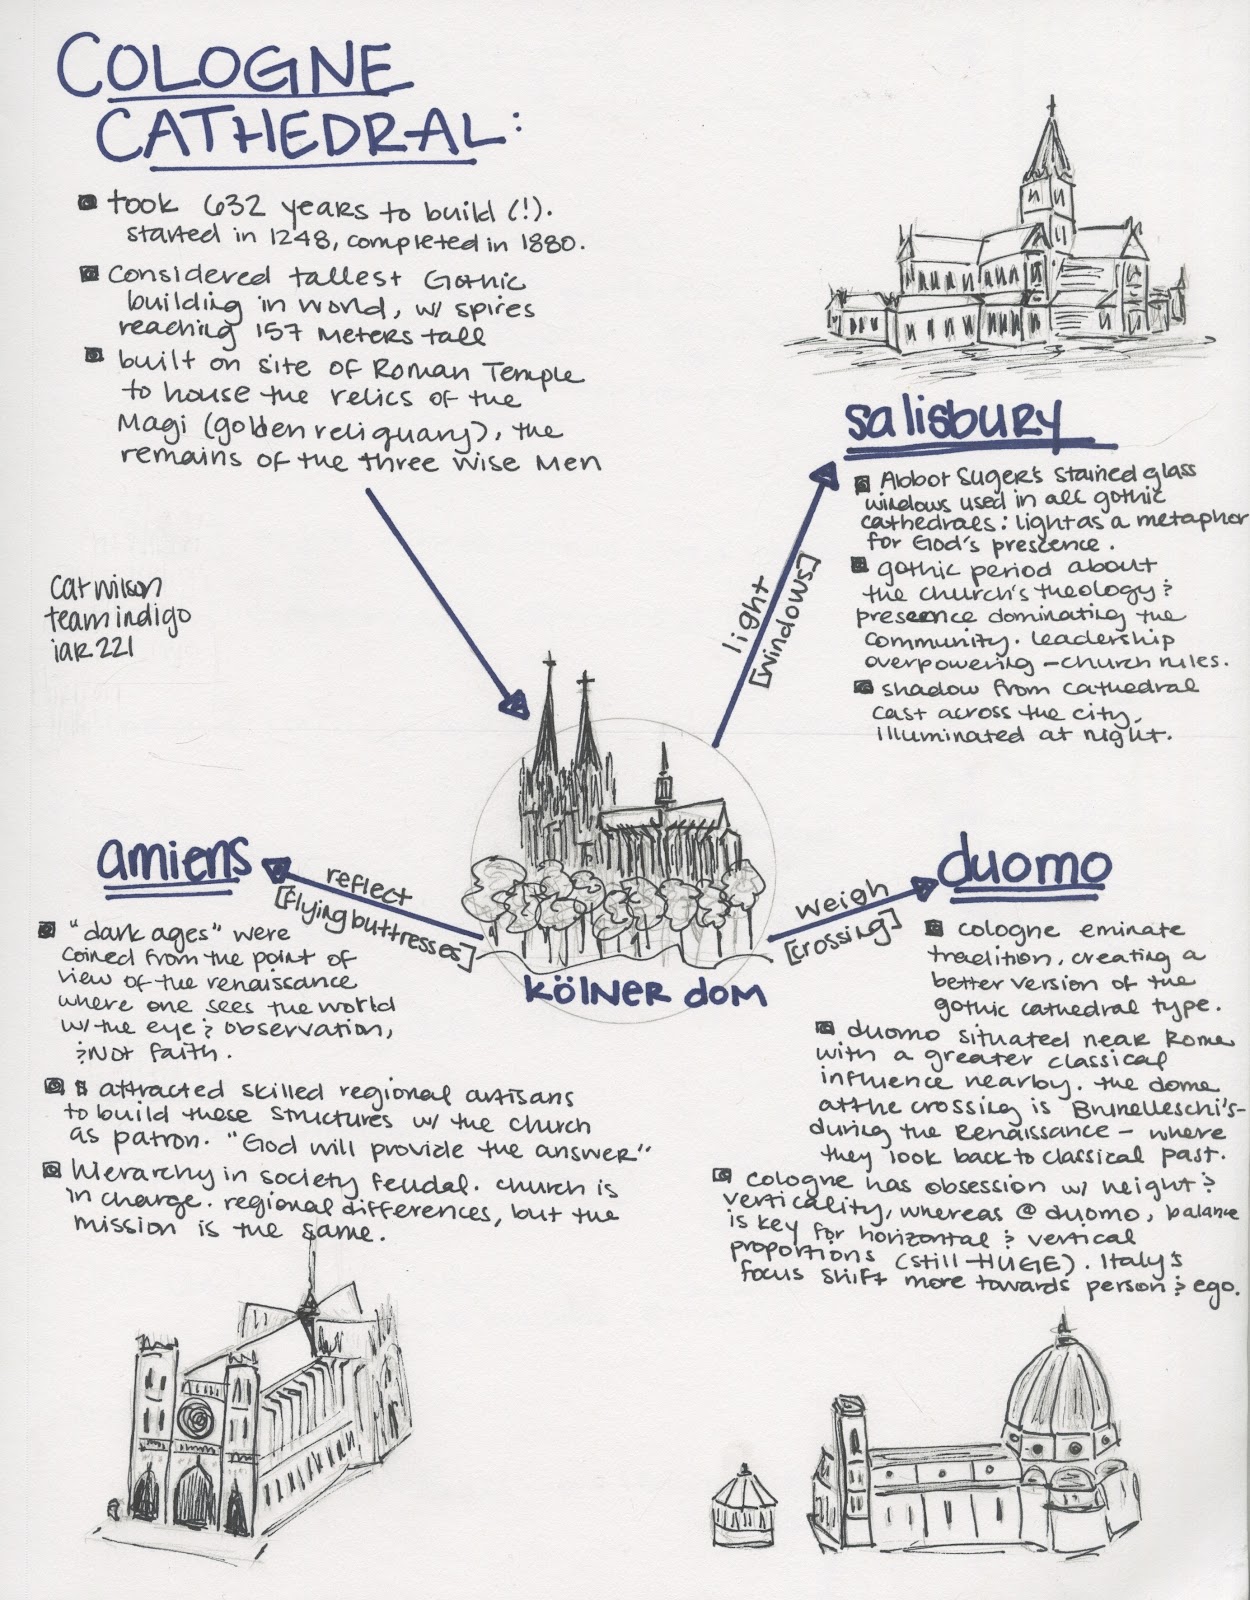 COLOGNE
CATHEDRAL:
took 632 years to build (!).
started in 1248, completed in 1880.
considered tallest Gothic
building in world, w/ spires
reaching 157 meters tall
built on site of Roman Temple
to house the relics of the
Magi (golden reliquary), the
remains of the three wise men
cat wilson
team indigo
iar 221
light
[windows]
salisbury
Abbot Suger's stained glass
windows used in all gothic
cathedraes: light as a metaphor
for God's prescence.
gothic period about
the church's theology &
prescence dominating the
community. leadership
overpowering - church rules.
shadow from cathedral
cast across the city,
illuminated at night.
amiens
reflect
[flying buttresses]
"dark ages" were
coined from the point of
view of the renaissance
where one sees the world
w/ the eye & observation,
& not faith.
attracted skilled regional artisans
to build these structures w/ the church
as patron. "God will provide the answer"
hierarchy in society feudal. church is
in charge. regional differences, but the
mission is the same.
kölner dom
weigh
[crossing]
duomo
cologne eminate
tradition, creating a
better version of the
gothic cathedral type.
duomo situated near Rome
with a greater classical
influence nearby. the dome
at the crossing is Brunelleschi's-
during the Renaissance - where
they look back to classical past.
cologne has obsession w/ height &
verticality, whereas @ duomo, balance
is key for horizontal & vertical
proportions (still HUGE). Italy's
focus shift more towards person & ego.